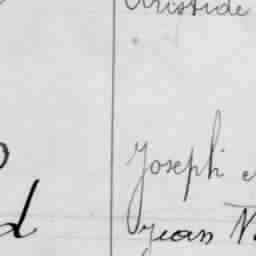 Aristide
Joseph
d
Jean